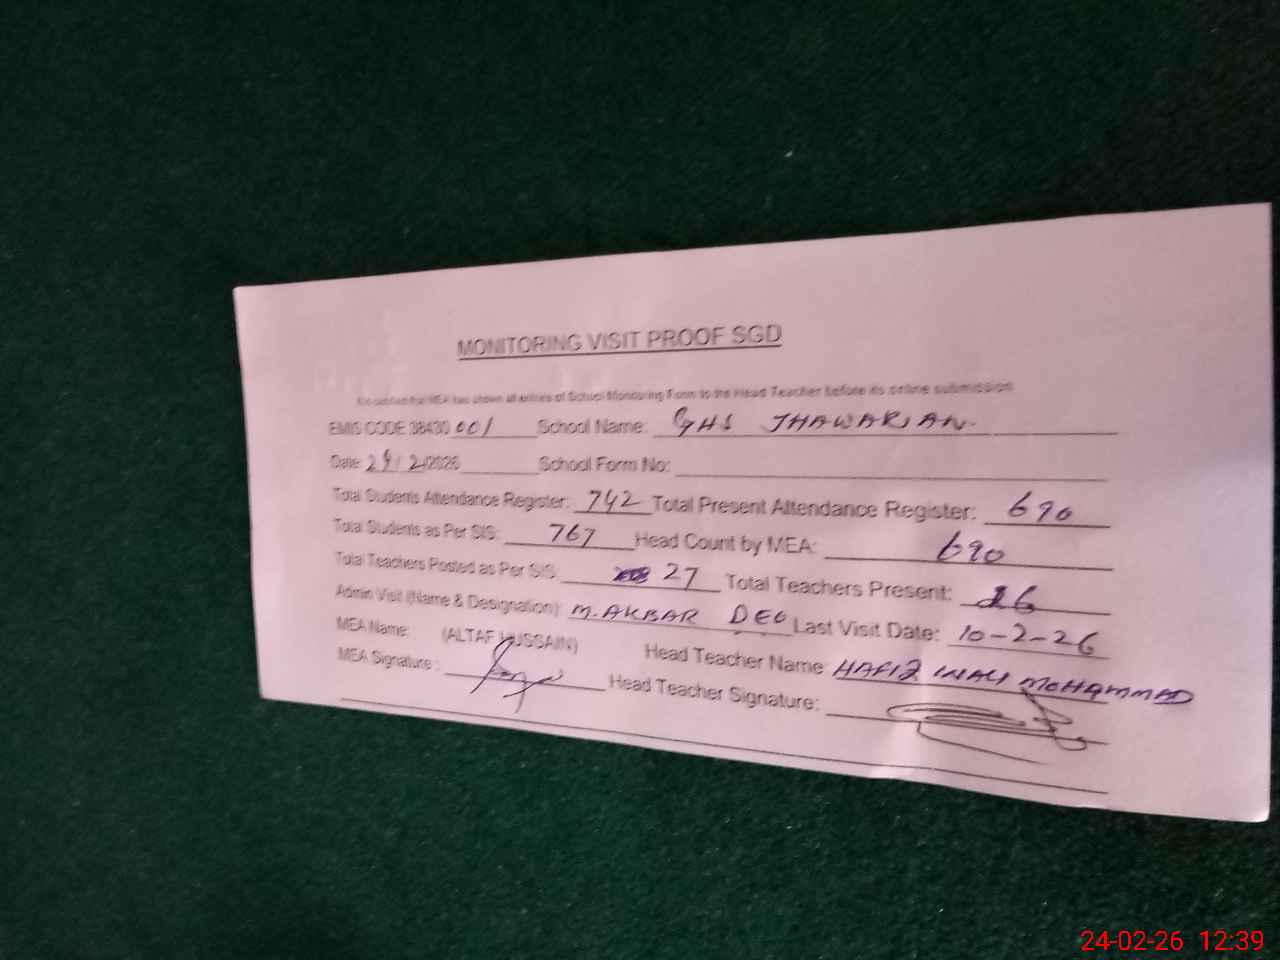 MONITORING VISIT PROOF SGD
It is certified that MEA has shown all entries of School Monitoring Form to the Head Teacher before its online submission
EMIS CODE 38430 001 School Name: GHS JHAWARIAN.
Date: 24/2/2026 School Form No:
Total Students Attendance Register: 742 Total Present Attendance Register: 690
Total Students as Per SIS: 767 Head Count by MEA: 690
Total Teachers Posted as Per SIS: 27 Total Teachers Present: 26
Admin Visit (Name & Designation): M. AKBAR DEO Last Visit Date: 10-2-26
MEA Name: (ALTAF HUSSAIN) Head Teacher Name HAFIZ WALI MOHAMMAD
MEA Signature : Head Teacher Signature:
24-02-26 12:39